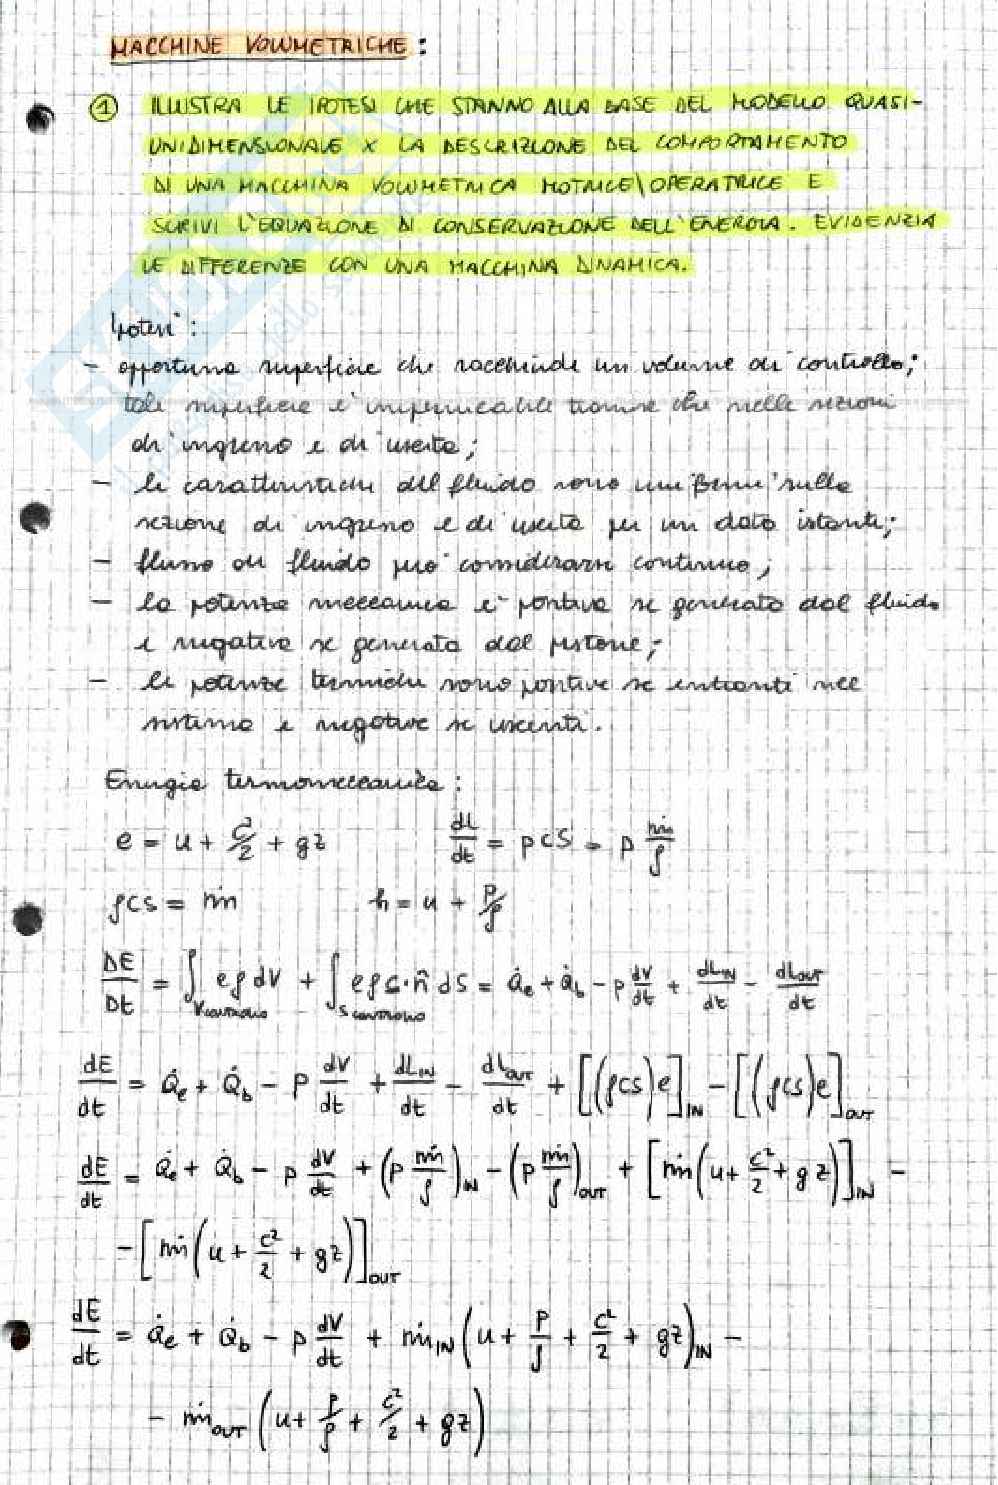 MACCHINE VOLUMETRICHE :
① ILLUSTRA LE IPOTESI CHE STANNO ALLA BASE DEL MODELLO QUASI-
UNIDIMENSIONALE X LA DESCRIZIONE DEL COMPORTAMENTO
DI UNA MACCHINA VOLUMETRICA MOTRICE\OPERATRICE E
SCRIVI L'EQUAZIONE DI CONSERVAZIONE DELL'ENERGIA. EVIDENZIA
LE DIFFERENZE CON UNA MACCHINA DINAMICA.
Ipotesi :
- opportuna superficie che racchiude un volume di controllo;
tale superficie è impermeabile tranne che nelle sezioni
di ingresso e di uscita;
- le caratteristiche del fluido sono uniformi sulla
sezione di ingresso e di uscita per un dato istante;
- flusso di fluido può considerarsi continuo;
- la potenza meccanica è positiva se generata dal fluido
e negativa se generata dal pistone;
- le potenze termiche sono positive se entranti nel
sistema e negative se uscenti.
Energia termomeccanica :
e = u + c²/2 + gz dL/dt = pcS = p ṁ/ρ
ρcs = ṁ h = u + p/ρ
DE/Dt = ∫V CONTROLLO eρdV + ∫S CONTROLLO eρc·n̂ dS = Q̇e + Q̇b - p dV/dt + dL IN/dt - dL OUT/dt
dE/dt = Q̇e + Q̇b - p dV/dt + dL IN/dt - dL OUT/dt + [(ρcs)e]IN - [(ρcs)e]OUT
dE/dt = Q̇e + Q̇b - p dV/dt + (p ṁ/ρ)IN - (p ṁ/ρ)OUT + [ṁ(u + c²/2 + gz)]IN -
- [ṁ(u + c²/2 + gz)]OUT
dE/dt = Q̇e + Q̇b - p dV/dt + ṁIN (u + p/ρ + c²/2 + gz)IN -
- ṁOUT (u + p/ρ + c²/2 + gz)